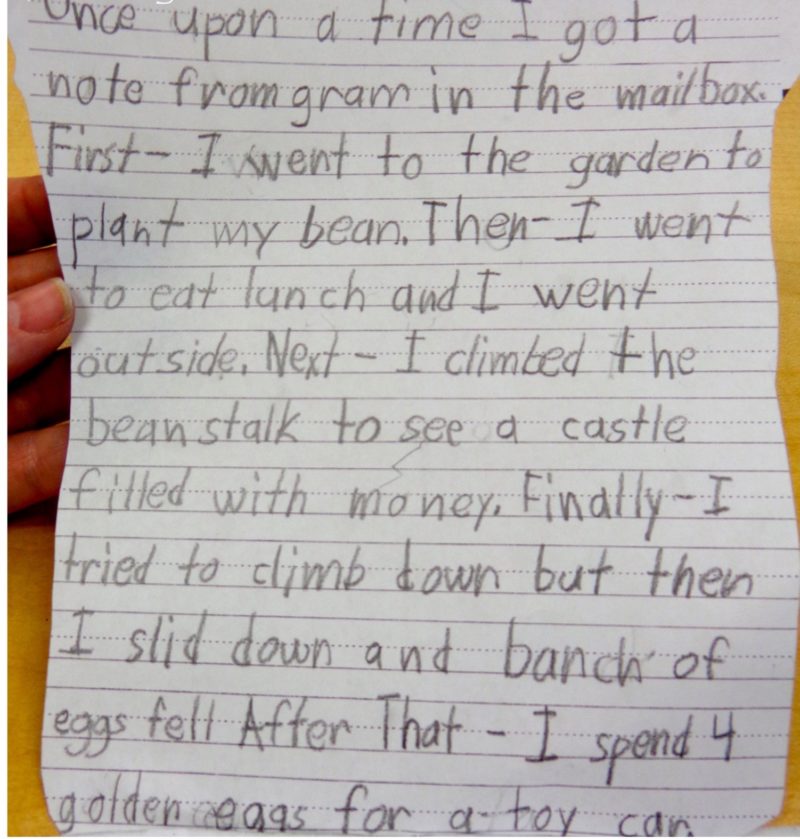 Once upon a time I got a
note from gram in the mailbox.
First- I went to the garden to
plant my bean. Then- I went
to eat lunch and I went
outside. Next - I climbed the
beanstalk to see a castle
filled with money. Finally - I
tried to climb down but then
I slid down and banch of
eggs fell After That - I spend 4
golden eggs for a toy car.